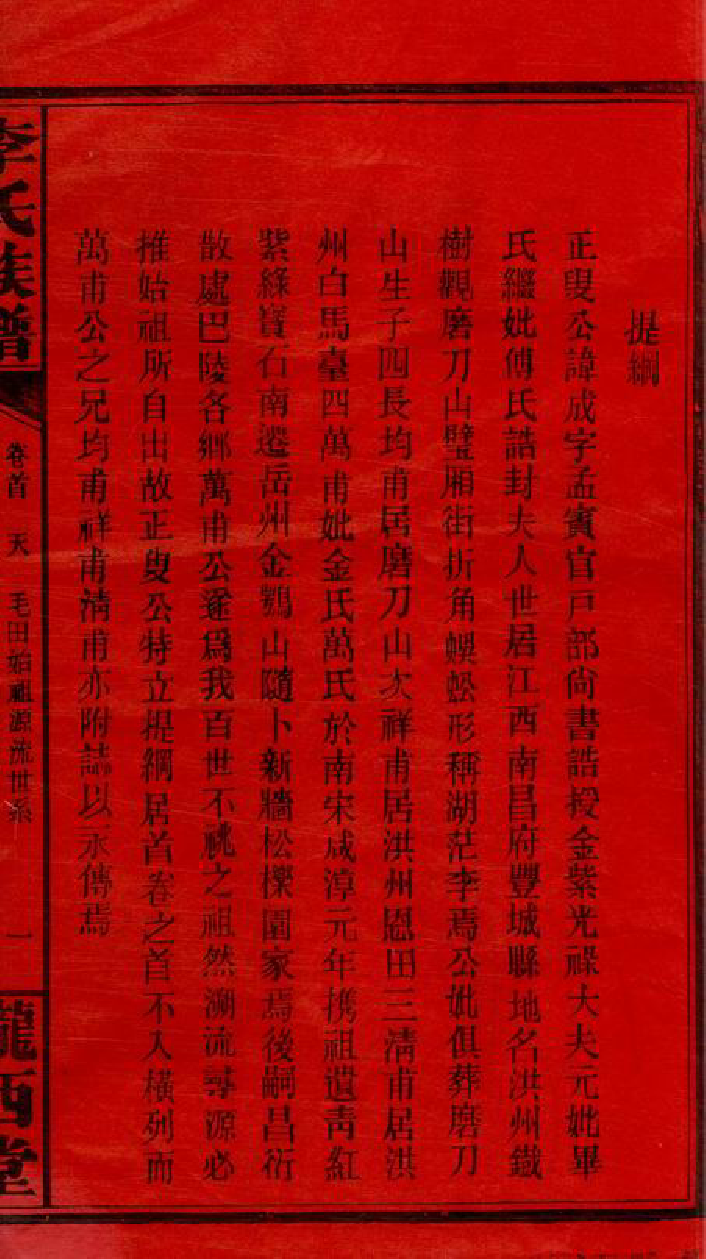 提綱
正叟公諱成字孟賓官戸部尙書誥授金紫光祿大夫元妣畢
氏繼妣傅氏誥封夫人世居江西南昌府豐城縣地名洪州鐵
樹觀磨刀山璧厢街折角蜈蚣形稱湖茫李焉公妣俱葬磨刀
山生子四長均甫居磨刀山次祥甫居洪州恩田三淸甫居洪
州白馬臺四萬甫妣金氏萬氏於南宋咸淳元年携祖遺靑紅
紫綠寳石南遷岳州金鶚山隨卜新牆松櫟園家焉後嗣昌衍
散處巴陵各鄉萬甫公遂爲我百世不祧之祖然溯流尋源必
推始祖所自出故正叟公特立提綱居首卷之首不入橫列而
萬甫公之兄均甫祥甫淸甫亦附誌以永傳焉
李氏族譜
卷首 天 毛田始祖源流世系 一
隴西堂